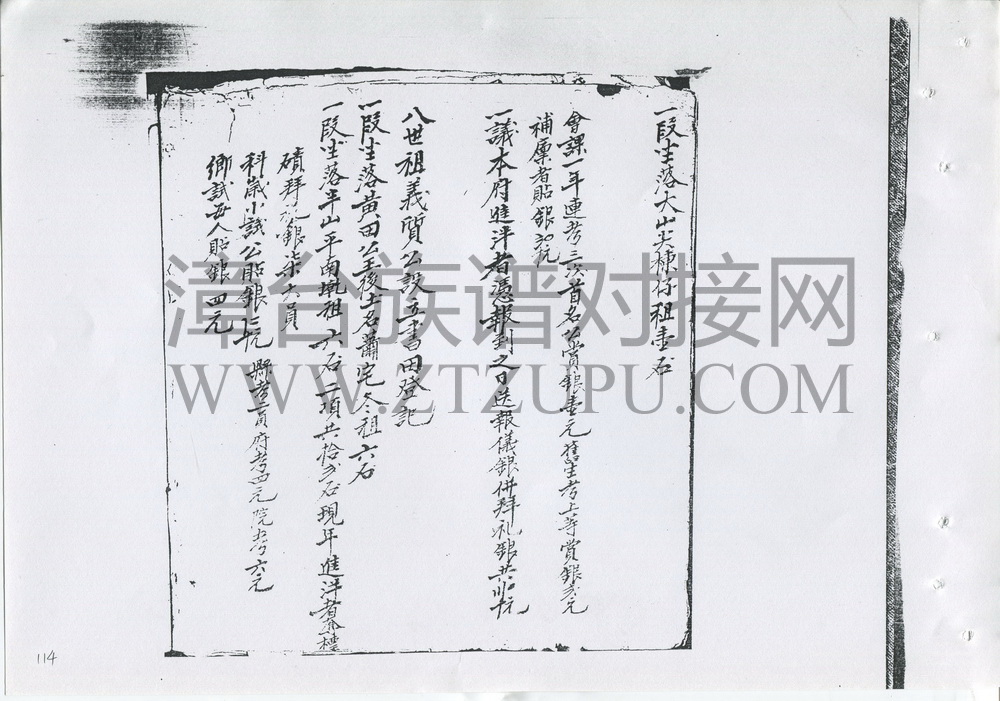 一段坐落大山尖棟仔租壹石
會課一年連考三次首名公賞銀壹元舊生考上等賞銀弍元
補廩者貼銀 元
一議本府進泮者憑報到之日送報儀銀併拜礼銀共 元
八世祖義質公設立書田登記
一段坐落黃田公王後土名蕭宅冬租六石
一段坐落半山平南 租六石二項共拾弍石現年進泮者 禮
碃拜 銀柒大員
科歲小試公貼銀 元縣考二員府考四元院考六元
鄉試每人貼銀四元
漳台族谱对接网
WWW.ZTZUPU.COM
114